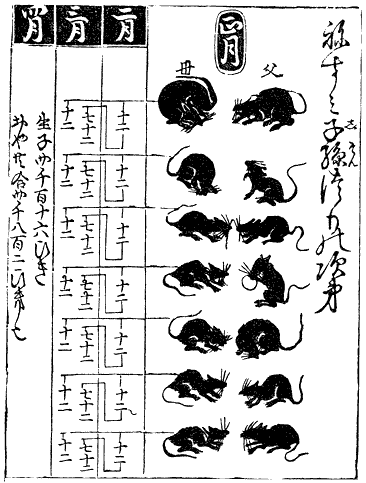 ねずミ子孫 次第
しそん
正月
父
母
二月
十二
十二
十二
十二
十二
十二
十二
三月
七十二
七十二
七十二
七十二
七十二
七十二
七十二
十二
十二
十二
十二
十二
十二
十二
四月
生子四千百十六ひき
おや共合四千八百二ひき也